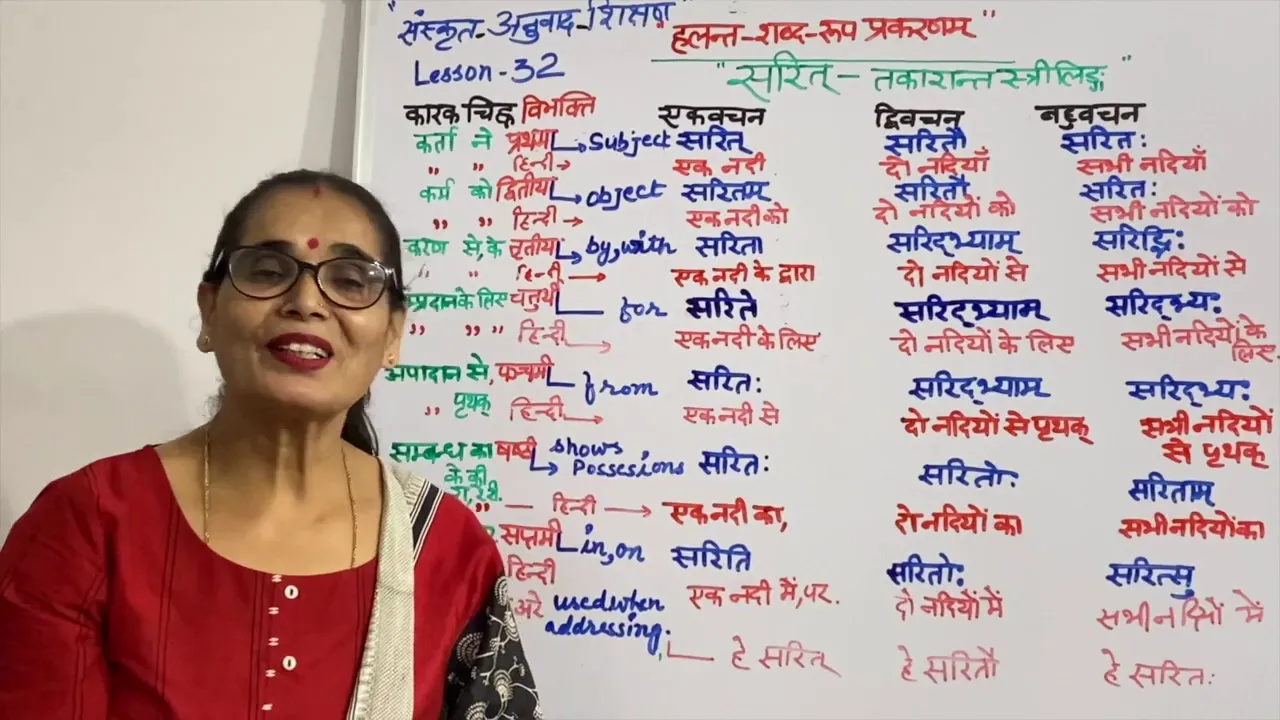 "संस्कृत-अनुवाद-शिक्षण"
Lesson-32
हलन्त-शब्द-रूप प्रकरणम्"
"सरित् - तकारान्त स्त्रीलिङ्ग"
कारक चिह्न विभक्ति एकवचन द्विवचन बहुवचन
कर्ता ने प्रथमा Subject सरित् सरितौ सरितः
" " हिन्दी एक नदी दो नदियाँ सभी नदियाँ
कर्म को द्वितीया object सरितम् सरितौ सरितः
" " हिन्दी एक नदी को दो नदियों को सभी नदियों को
करण से, के तृतीया by, with सरिता सरिद्भ्याम् सरिद्भिः
" " हिन्दी एक नदी के द्वारा दो नदियों से सभी नदियों से
प्रदान के लिए चतुर्थी for सरिते सरिद्भ्याम् सरिद्भ्यः
" " " हिन्दी एक नदी के लिए दो नदियों के लिए सभी नदियों के लिए
अपादान से, पञ्चमी from सरितः सरिद्भ्याम् सरिद्भ्यः
" पृथक् हिन्दी एक नदी से दो नदियों से पृथक् सभी नदियों से पृथक्
सम्बन्ध का षष्ठी shows Possesions सरितः सरितोः सरिताम्
के की
" — हिन्दी एक नदी का, दो नदियों का सभी नदियों का
सप्तमी in, on सरिति सरितोः सरित्सु
हिन्दी एक नदी में, पर. दो नदियों में सभी नदियों में
अरे used when addressing. हे सरित् हे सरितौ हे सरितः